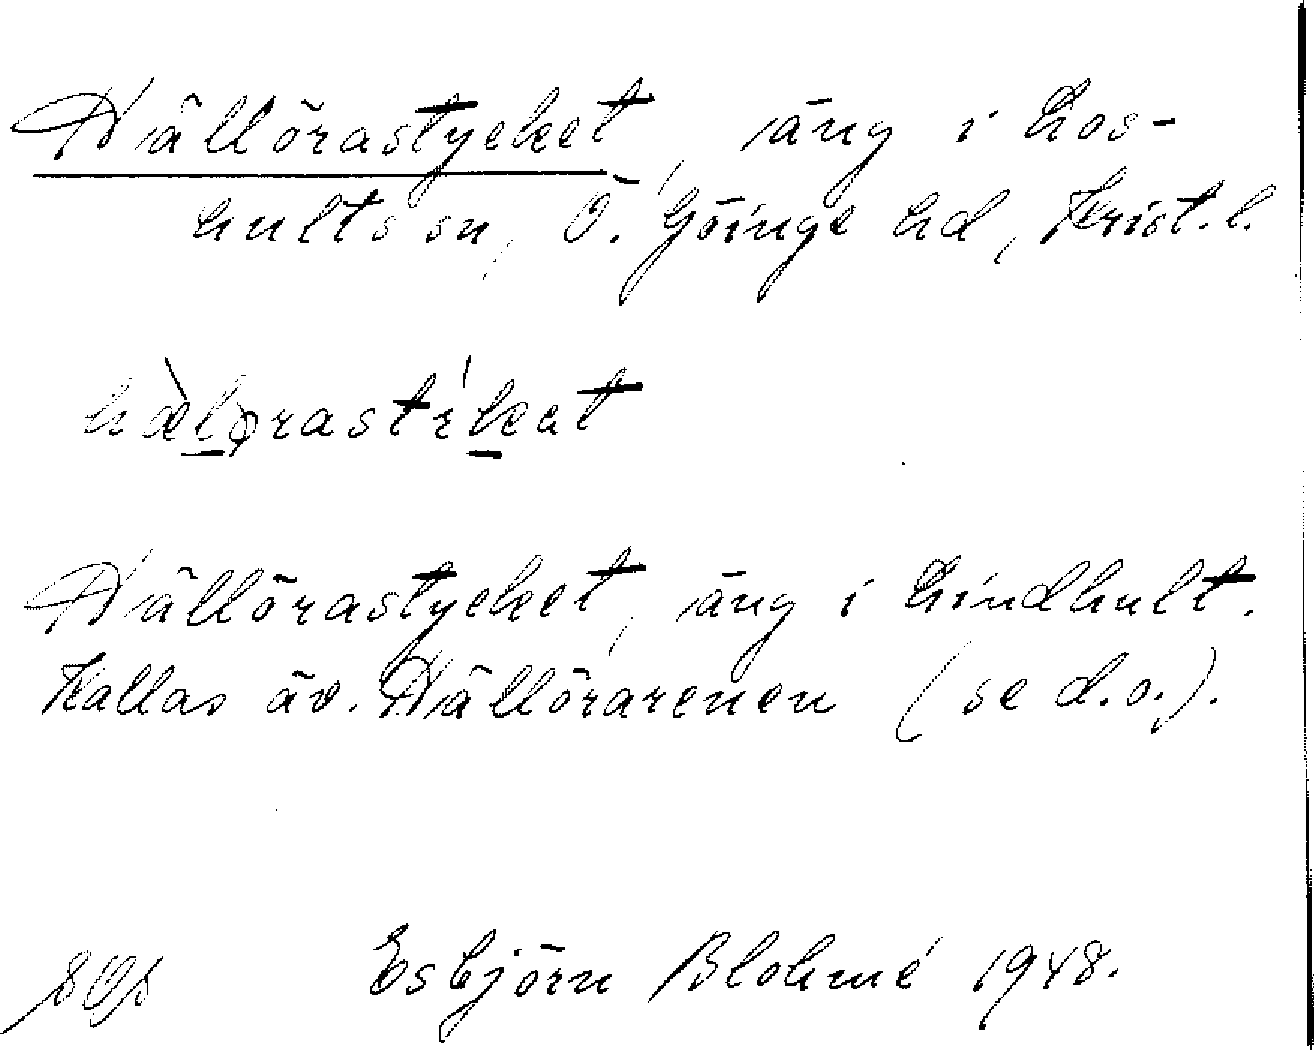 Hällörastycket, äng i Los-
hults sn, Ö. Göinge hd, Krist. l.
hælørastikat
Hällörastycket, äng i Lindhult.
Kallas äv. Hällörarenen (se d.o.).
Esbjörn Blohmé 1948.